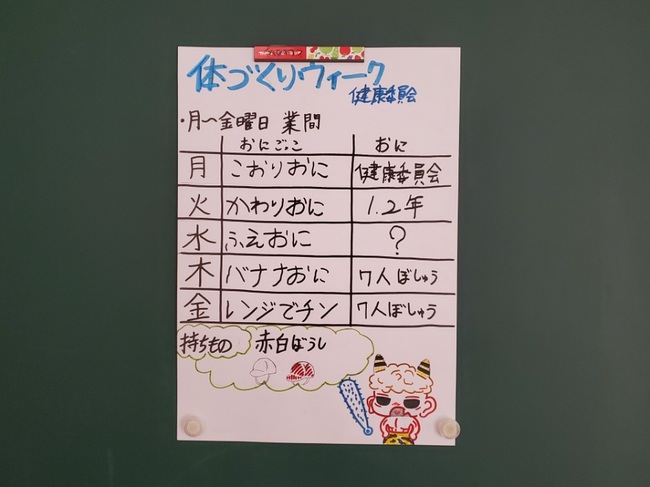 体づくりウィーク
健康委員会
・月〜金曜日 業間
おにごっこ おに
月 こおりおに 健康委員会
火 かわりおに 1.2年
水 ふえおに ?
木 バナナおに 7人ぼしゅう
金 レンジでチン 7人ぼしゅう
持ちもの 赤白ぼうし